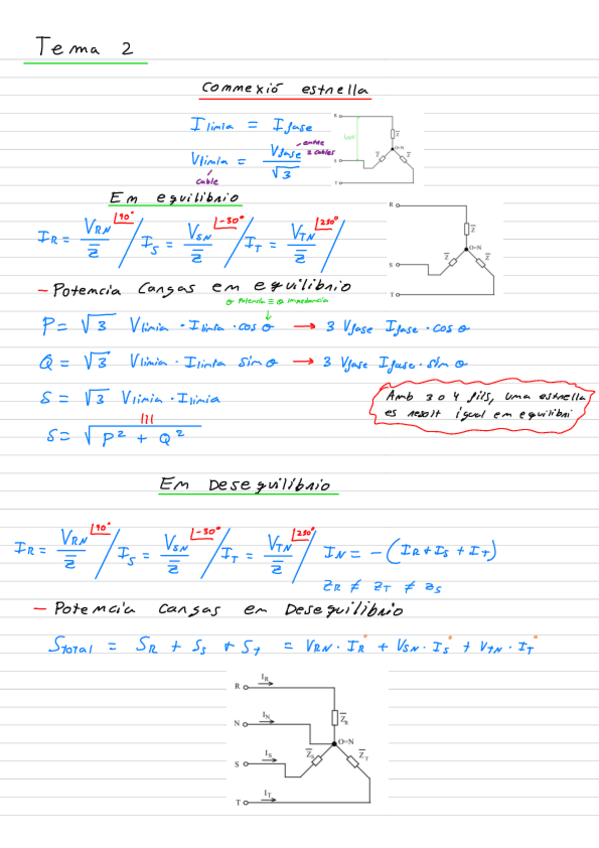 Tema 2
Commexió estrella
I limia = I fase
V limia = V fase / √3
entre 2 cables
cable
Em equilibrio
I_R = V_RN ∠90° / Z̅ / I_S = V_SN ∠-30° / Z̅ / I_T = V_TN ∠210° / Z̅ /
R
S
T
Z̅
Z̅
Z̅
O=N
- Potencia Cargas em equilibrio
θ potencia ≡ θ impedancia
P = √3 V limia · I limia · cos θ → 3 V fase I fase · cos θ
Q = √3 V limia · I limia sim θ → 3 V fase I fase · sim θ
S = √3 V limia · I limia
S = √P² + Q²
Amb 3 o 4 fils, uma estrella
es resolt igual em equilibri
Em Desequilibrio
I_R = V_RN ∠90° / Z̅ / I_S = V_SN ∠-30° / Z̅ / I_T = V_TN ∠210° / Z̅ / I_N = -(I_R + I_S + I_T)
Z_R ≠ Z_T ≠ Z_S
- Potemcia cargas em Desequilibrio
S total = S_R + S_S + S_T = V_RN · I_R* + V_SN · I_S* + V_TN · I_T*
R I_R
Z̅_R
N I_N
O=N
S I_S
Z̅_S
Z̅_T
T I_T